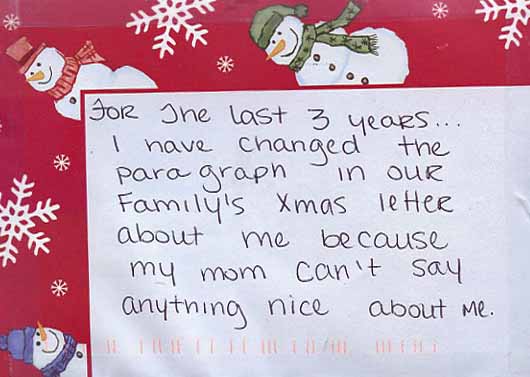 FOR The last 3 years...
I have changed the
paragraph in our
Family's Xmas letter
about me because
my mom can't say
anything nice about me.